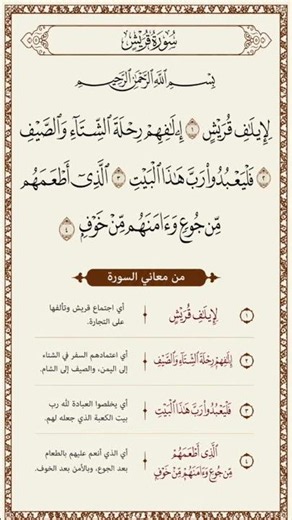 سُورَةُ قُرَيْشٍ
بِسْمِ ٱللَّهِ ٱلرَّحْمَٰنِ ٱلرَّحِيمِ
لِإِيلَٰفِ قُرَيْشٍ ١ إِۦلَٰفِهِمْ رِحْلَةَ ٱلشِّتَآءِ وَٱلصَّيْفِ
٢ فَلْيَعْبُدُوا۟ رَبَّ هَٰذَا ٱلْبَيْتِ ٣ ٱلَّذِىٓ أَطْعَمَهُم
مِّن جُوعٍ وَءَامَنَهُم مِّنْ خَوْفٍۭ ٤
من معاني السورة
١ لِإِيلَٰفِ قُرَيْشٍ
أي اجتماع قريش وتآلفها
على التجارة.
٢ إِۦلَٰفِهِمْ رِحْلَةَ ٱلشِّتَآءِ وَٱلصَّيْفِ
أي اعتمادهم السفر في الشتاء
إلى اليمن، والصيف إلى الشام.
٣ فَلْيَعْبُدُوا۟ رَبَّ هَٰذَا ٱلْبَيْتِ
أي يخلصوا العبادة لله رب
بيت الكعبة الذي جعله لهم.
٤ ٱلَّذِىٓ أَطْعَمَهُم
مِّن جُوعٍ وَءَامَنَهُم مِّنْ خَوْفٍۭ
أي الذي أنعم عليهم بالطعام
بعد الجوع، وبالأمن بعد الخوف.